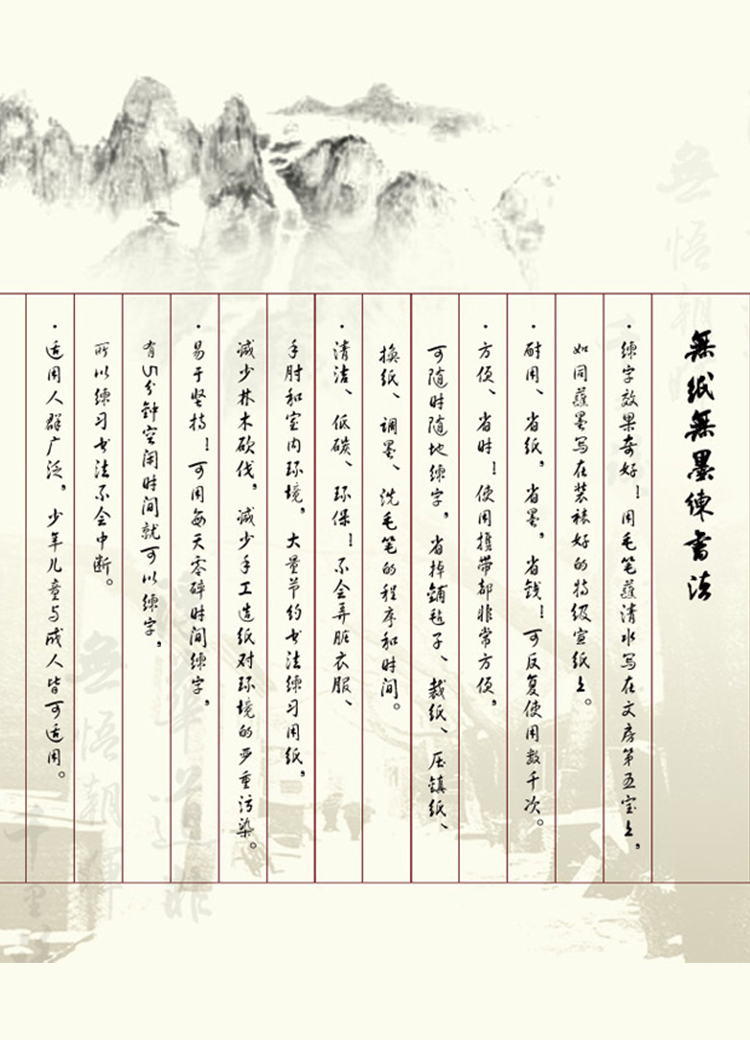 無纸無墨练书法
·练字效果奇好！用毛笔蘸清水写在文房第五宝上，
如同蘸墨写在装裱好的特级宣纸上。
·耐用、省纸，省墨，省钱！可反复使用数千次。
·方便、省时！使用携带都非常方便，
可随时随地练字，省掉铺毡子、裁纸、压镇纸、
换纸、调墨、洗毛笔的程序和时间。
·清洁、低碳、环保！不会弄脏衣服、
手肘和室内环境，大量节约书法练习用纸，
减少林木砍伐，减少手工造纸对环境的严重污染。
·易于坚持！可用每天零碎时间练字，
有5分钟空闲时间就可以练字，
所以练习书法不会中断。
·适用人群广泛，少年儿童与成人皆可适用。
無悟朝
無悟朝輝
道非
千里